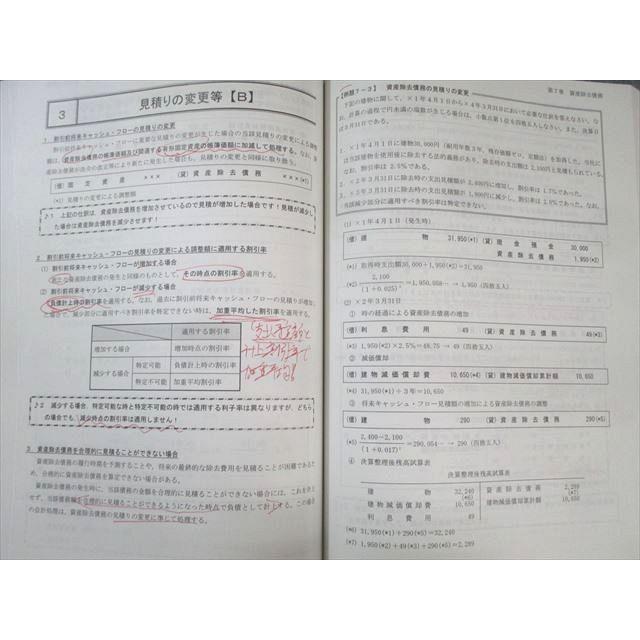 3 見積りの変更等【B】
1 割引前将来キャッシュ・フローの見積りの変更
割引前将来キャッシュ・フローに重要な見積りの変更が生じた場合の当該見積りの変更による調整
額は、資産除去債務の帳簿価額及び関連する有形固定資産の帳簿価額に加減して処理する。なお、
(借) 固定資産 ××× (貸) 資産除去債務 ×××(*1)
(*1) 見積りの変更による調整額
♪1 上記の仕訳は、資産除去債務を増加させているので見積が増加した場合です!見積が減少し
た場合は資産除去債務を減少させます!
2 割引前将来キャッシュ・フローの見積りの変更による調整額に適用する割引率
(1) 割引前将来キャッシュ・フローが増加する場合
新たな資産除去債務の発生と同様のものとして、その時点の割引率を適用する。
(2) 割引前将来キャッシュ・フローが減少する場合
負債計上時の割引率を適用する。なお、過去に割引前将来キャッシュ・フローの見積りが増加し
た場合で、減少部分に適用すべき割引率を特定できない時は、加重平均した割引率を適用する。
適用する割引率
増加する場合 増加時点の割引率
減少する場合 特定可能 負債計上時の割引率
特定不可能 加重平均割引率
♪2 減少する場合、特定可能な時と特定不可能の時では適用する利子率は異なりますが、どちら
の場合でも、減少時点の割引率は適用しません!
3 資産除去債務を合理的に見積ることができない場合
資産除去債務の履行時期を予測することや、将来の最終的な除去費用を見積ることが困難であるた
め、合理的に資産除去債務を算定できない場合がある。
資産除去債務の発生時に、当該債務の金額を合理的に見積ることができない場合には、これを計上
せず、当該債務額を合理的に見積ることができるようになった時点で負債として計上する。この場合
の会計処理は、資産除去債務の見積りの変更に準じて処理する。
【例題7-3】 資産除去債務の見積りの変更 第7章 資産除去債務
下記の建物に関して、×1年4月1日から×4年3月31日において必要な仕訳を答えなさい。な
お、計算の過程で円未満の端数が生じる場合は、小数点第1位を四捨五入しなさい。また、決算日
は3月31日である。
1. ×1年4月1日に建物30,000円(耐用年数3年、残存価額ゼロ、定額法)を取得した。当社に
は当該建物を使用後に除去する法的義務があり、除去時の支出額は2,100円と見積もられている。
割引率は2.5%である。
2. ×2年3月31日に除去時の支出見積額が2,400円に増加し、割引率は1.7%であった。
(1) ×1年4月1日(発生時)
(借) 建物 31,950(*1) (貸) 現金預金 30,000
資産除去債務 1,950(*2)
(*1) 取得時支出額30,000+1,950(*2)=31,950
(*2) 2,100 / (1+0.025)³ =1,950.058… → 1,950 (四捨五入)
(2) ×2年3月31日
① 時の経過による資産除去債務の増加
(借) 利息費用 49 (貸) 資産除去債務 49(*3)
(*3) 1,950(*2)×2.5%=48.75 → 49 (四捨五入)
② 減価償却
(借) 建物減価償却費 10,650(*4) (貸) 建物減価償却累計額 10,650
(*4) 31,950(*1)÷3年=10,650
③ 将来キャッシュ・フロー見積額の増加による資産除去債務の調整
(借) 建物 290 (貸) 資産除去債務 290(*5)
(*5) 2,400-2,100 / (1+0.017)² =290.054… → 290 (四捨五入)
④ 決算整理後残高試算表
決算整理後残高試算表
建物 32,240(*6) 資産除去債務 2,289(*7)
建物減価償却費 10,650 建物減価償却累計額 10,650
利息費用 49
(*6) 31,950(*1)+290(*5)=32,240
(*7) 1,950(*2)+49(*3)+290(*5)=2,289